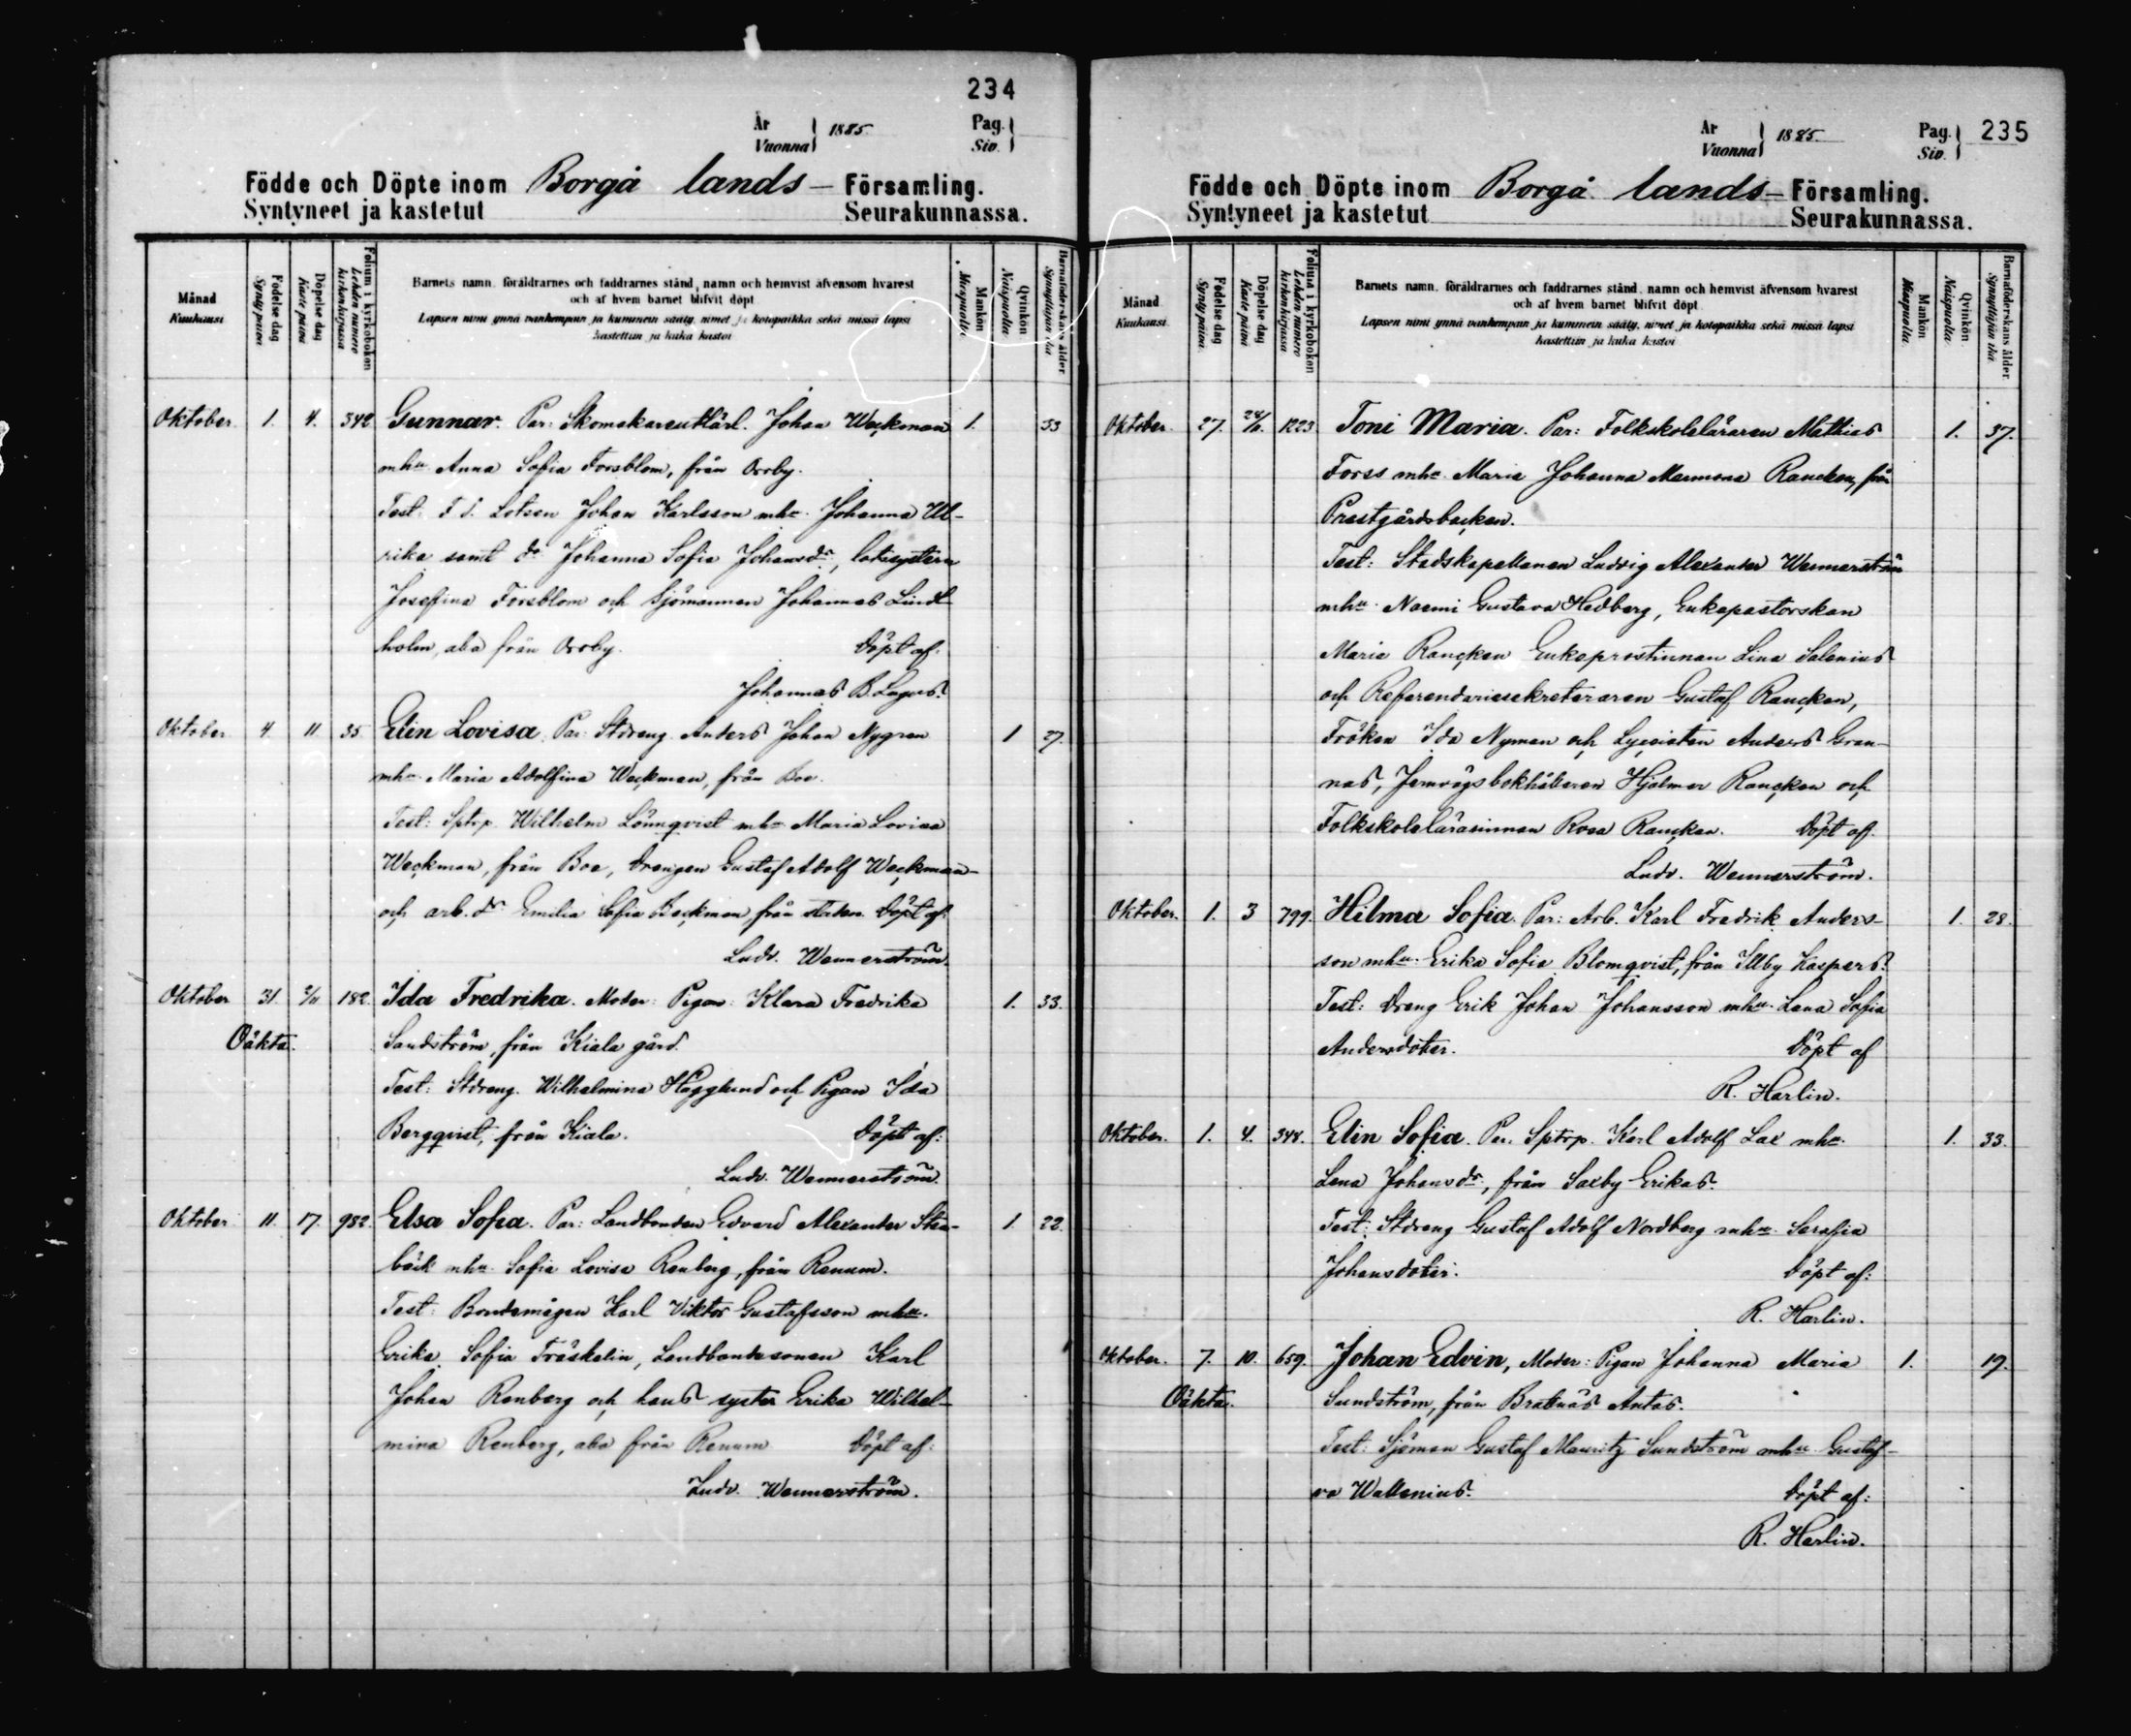 234
År
Vuonna } 1885.
Pag.
Siv. }
Födde och Döpte inom Borgå lands- Församling.
Syntyneet ja kastetut Seurakunnassa.
Månad
Kuukausi
Födelse dag
Synty päivä
Döpelse dag
Kaste päivä
Folium i kyrkoboken
Lehden numero kirkonkirjassa
Barnets namn, föräldrarnes och faddrarnes stånd, namn och hemvist äfvensom hvarest
och af hvem barnet blifvit döpt
Lapsen nimi ynnä vanhempain ja kummein sääty, nimet ja kotopaikka sekä missä lapsi
kastettiin ja kuka kastoi
Mankön
Miespuolta
Qvinkön
Naispuolta
Barnaföderskans ålder
Synnyttäjän ikä
Oktober 1. 4. 342 Gunnar. Par: Skomakareutlärl. Johan Weckman 1. 33
mhu Anna Sofia Forsblom, från Orrby.
Test: F.d. Lotsen Johan Karlsson mhu Johanna Ul-
rika samt dr Johanna Sofia Johansdr, lotssystern
Josefina Forsblom och Sjömannen Johannes Lind-
holm, alla från Orrby. Döpt af:
Johannes B. Lagus.
Oktober 4. 11 35 Elin Lovisa. Par: Stdräng Anders Johan Nygren 1 27.
mhu Maria Adolfina Weckman, från Boe.
Test: Sptrp. Wilhelm Lönnqvist mhu Maria Lovisa
Weckman, från Boe, Drängen Gustaf Adolf Weckman
och arb. dr Emilia Sofia Beckman från staden. Döpt af:
Ludv. Wennerström.
Oktober 31. 2/11 182. Ida Fredrika. Moder: Pigan Klara Fredrika 1. 33.
Oäkta. Sandström, från Kiala gård.
Test: Stdräng. Wilhelmina Hägglund och Pigan Ida
Bergqvist, från Kiala. Döpt af:
Ludv. Wennerström.
Oktober 11. 17. 982. Elsa Sofia. Par: Landbonden Edvard Alexander Sten- 1. 22.
bäck mhu Sofia Lovisa Renberg, från Renum.
Test: Bondemågen Karl Viktor Gustafsson mhu
Erika Sofia Träskelin, Landbondesonen Karl
Johan Renberg och hans syster Erika Wilhel-
mina Renberg, alla från Renum Döpt af:
Ludv. Wennerström.
År
Vuonna } 1885.
Pag.
Siv. } 235
Födde och Döpte inom Borgå lands- Församling.
Syntyneet ja kastetut Seurakunnassa.
Månad
Kuukausi
Födelse dag
Synty päivä
Döpelse dag
Kaste päivä
Folium i kyrkoboken
Lehden numero kirkonkirjassa
Barnets namn, föräldrarnes och faddrarnes stånd, namn och hemvist äfvensom hvarest
och af hvem barnet blifvit döpt
Lapsen nimi ynnä vanhempain ja kummein sääty, nimet ja kotopaikka sekä missä lapsi
kastettiin ja kuka kastoi
Mankön
Miespuolta
Qvinkön
Naispuolta
Barnaföderskans ålder
Synnyttäjän ikä
Oktober. 27. 1223. Toni Maria. Par: Folkskoleläraren Mathias 1. 37.
Forss mhu Maria Johanna Rancken, från
Prestgårdsbacken.
Test: Stadskapellanen Ludvig Alexander Wennerström
mhu Naemi Gustava Hedberg, Enkepastorskan
Maria Rancken Enkeprostinnan Lina Salenius
och Referendariesekreteraren Gustaf Rancken,
Fröken Ida Nyman och Lyceisten Anders Gran-
nas, Jernvägsbokhållaren Hjalmar Rancken och
Folkskolelärarinnan Rosa Rancken. Döpt af.
Ludv. Wennerström.
Oktober. 1. 3 799. Hilma Sofia. Par: Arb. Karl Fredrik Anders- 1. 28.
son mhu Erika Sofia Blomqvist, från Illby Kaspers.
Test: Dräng Erik Johan Johansson mhu Lena Sofia
Andersdoter. Döpt af
R. Harlin.
Oktober. 1. 4. 348. Elin Sofia. Par. Sptrp. Karl Adolf Lax mhu 1. 33.
Lena Johansdr, från Saxby Erikas.
Test: Stdräng Gustaf Adolf Nordberg mhu Serafia
Johansdoter. Döpt af:
R. Harlin.
Oktober. 7. 10. 659. Johan Edvin, Moder: Pigan Johanna Maria 1. 19.
Oäkta. Sundström, från Brattnäs Antas.
Test: Sjöman Gustaf Mauritz Sundström mhu Gusta-
va Wallenius. Döpt af:
R. Harlin.